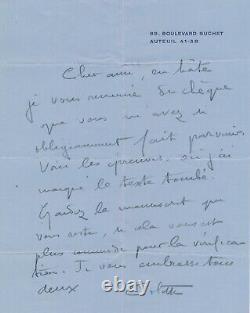 69, BOULEVARD SUCHET
AUTEUIL 41-38
Cher ami, en hâte
je vous remercie du chèque
que vous m'avez si
obligeamment fait parvenir.
Voici les épreuves, où j'ai
marqué le texte tombé.
Gardez le manuscrit que
vous avez, si cela vous est
plus commode pour la vérifica
tion. Je vous embrasse tous
deux Colette